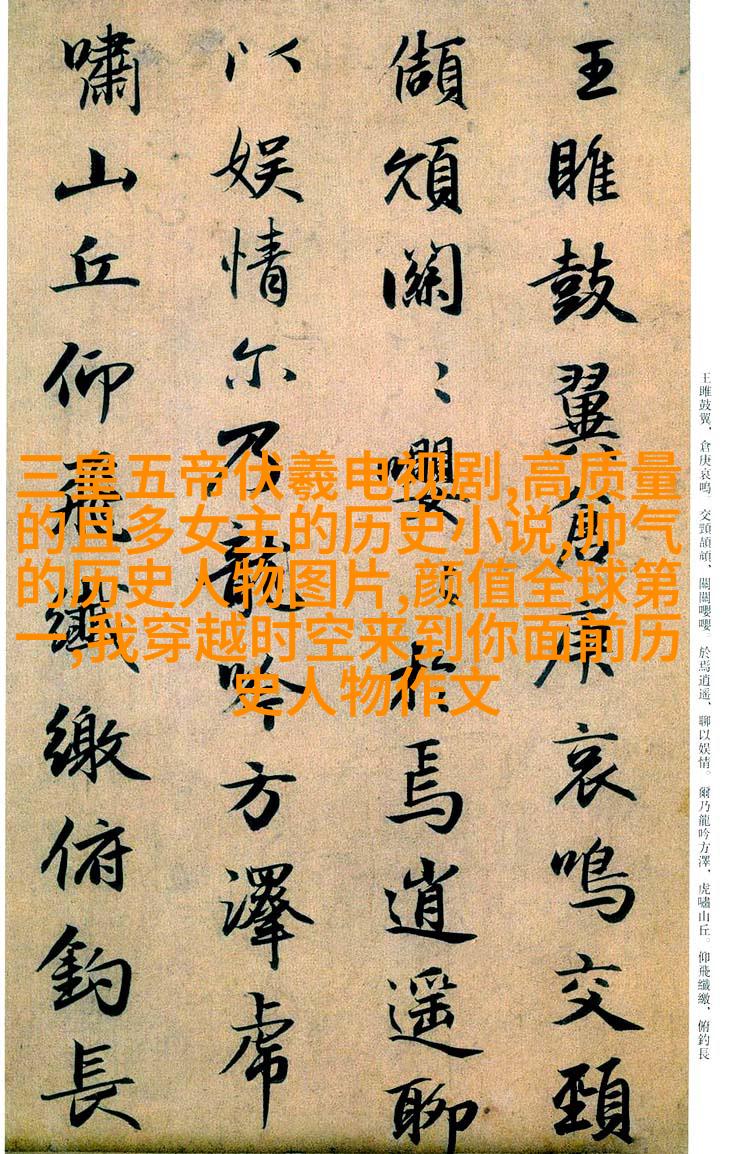 王雎鼓翼倉庚哀鳴交頸
頡頏關〻嚶〻於焉逍遥聊
以娱情尔乃龍吟方澤虎
嘯山丘仰飛纖繳俯釣長
王雎鼓翼、倉庚哀鳴。交頸頡頏、關關嚶嚶。於焉逍遥、聊以娱情。爾乃龍吟方澤、虎嘯山丘。仰飛纖繳、俯釣長
三皇五帝伏羲电视剧,高质量
的且多女主的历史小说,帅气
的历史人物图片,颜值全球第
一,我穿越时空来到你面前历
史人物作文